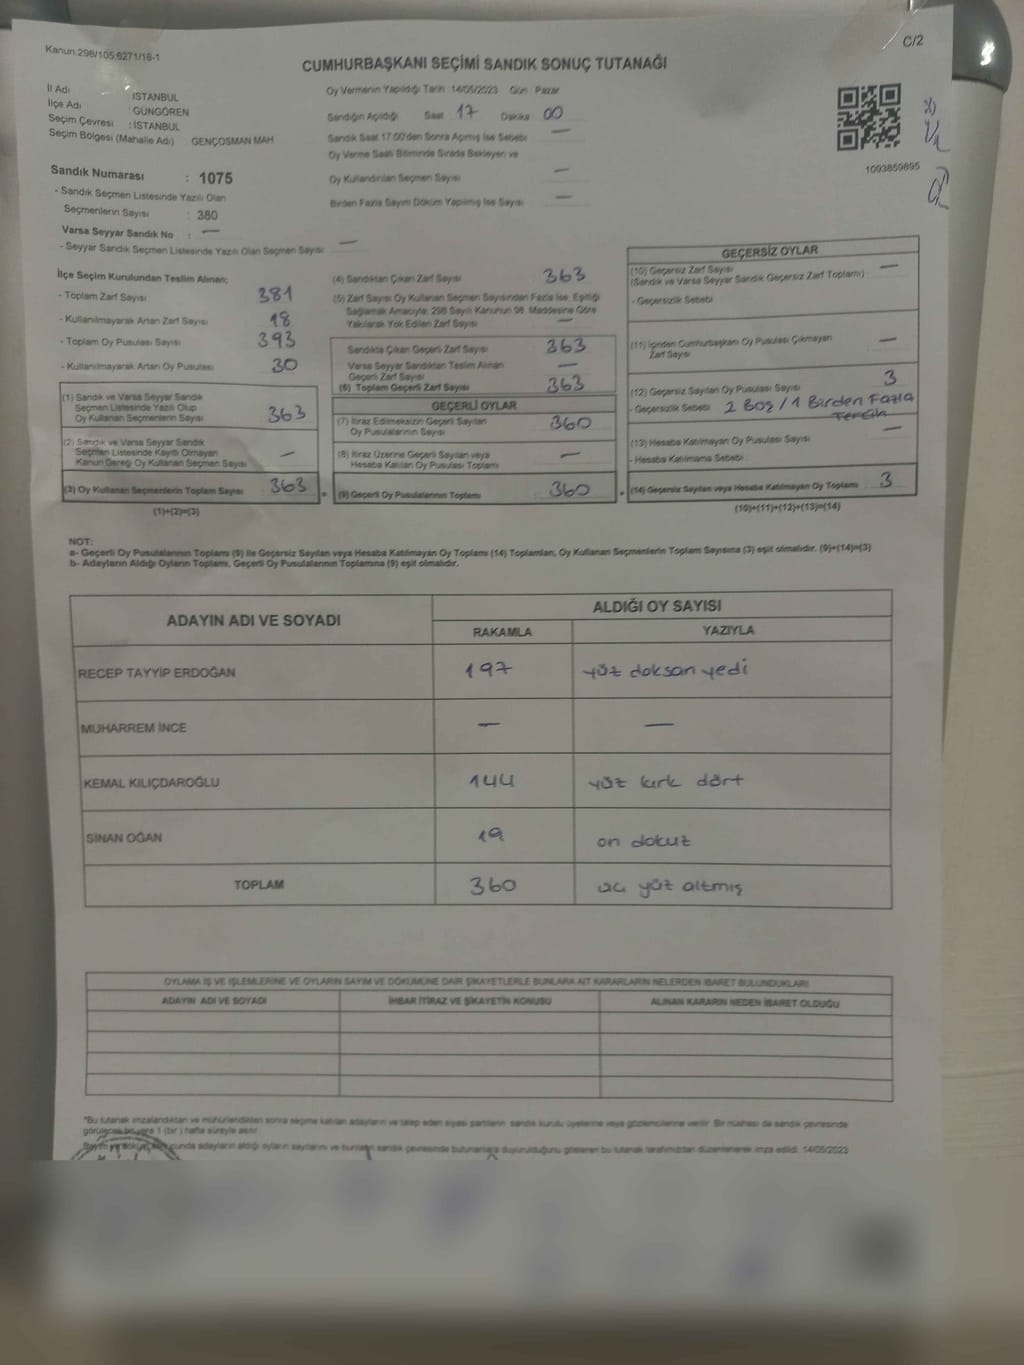 Kanun:298/105;6271/18-1
C/2
CUMHURBAŞKANI SEÇİMİ SANDIK SONUÇ TUTANAĞI
İl Adı : İSTANBUL
İlçe Adı : GÜNGÖREN
Seçim Çevresi : İSTANBUL
Seçim Bölgesi (Mahalle Adı) GENÇOSMAN MAH.
Oy Vermenin Yapıldığı Tarih :14/05/2023 Gün : Pazar
Sandığın Açıldığı Saat 17 Dakika 00
Sandık Saat 17.00'den Sonra Açılmış İse Sebebi —
Oy Verme Saati Bitiminde Sırada Bekleyen ve
Oy Kullandırılan Seçmen Sayısı —
Birden Fazla Sayım Döküm Yapılmış İse Sayısı —
1093859895
Sandık Numarası : 1075
- Sandık Seçmen Listesinde Yazılı Olan
Seçmenlerin Sayısı : 380
Varsa Seyyar Sandık No : —
- Seyyar Sandık Seçmen Listesinde Yazılı Olan Seçmen Sayısı : —
İlçe Seçim Kurulundan Teslim Alınan;
- Toplam Zarf Sayısı 381
- Kullanılmayarak Artan Zarf Sayısı 18
- Toplam Oy Pusulası Sayısı 393
- Kullanılmayarak Artan Oy Pusulası 30
(1) Sandık ve Varsa Seyyar Sandık
Seçmen Listesinde Yazılı Olup
Oy Kullanan Seçmenlerin Sayısı 363
(2) Sandık ve Varsa Seyyar Sandık
Seçmen Listesinde Kayıtlı Olmayan
Kanun Gereği Oy Kullanan Seçmen Sayısı —
(3) Oy Kullanan Seçmenlerin Toplam Sayısı 363
(1)+(2)=(3)
(4) Sandıktan Çıkan Zarf Sayısı 363
(5) Zarf Sayısı Oy Kullanan Seçmen Sayısından Fazla İse, Eşitliği
Sağlamak Amacıyla, 298 Sayılı Kanunun 98. Maddesine Göre
Yakılarak Yok Edilen Zarf Sayısı —
Sandıkta Çıkan Geçerli Zarf Sayısı 363
Varsa Seyyar Sandıktan Teslim Alınan
Geçerli Zarf Sayısı —
(6) Toplam Geçerli Zarf Sayısı 363
GEÇERLİ OYLAR
(7) İtiraz Edilmeksizin Geçerli Sayılan
Oy Pusulalarının Sayısı 360
(8) İtiraz Üzerine Geçerli Sayılan veya
Hesaba Katılan Oy Pusulası Toplamı —
= (9) Geçerli Oy Pusulalarının Toplamı 360
GEÇERSİZ OYLAR
(10) Geçersiz Zarf Sayısı —
(Sandık ve Varsa Seyyar Sandık Geçersiz Zarf Toplamı)
- Geçersizlik Sebebi
(11) İçinden Cumhurbaşkanı Oy Pusulası Çıkmayan
Zarf Sayısı —
(12) Geçersiz Sayılan Oy Pusulası Sayısı 3
- Geçersizlik Sebebi 2 Boş / 1 Birden Fazla
Tercih
(13) Hesaba Katılmayan Oy Pusulası Sayısı —
- Hesaba Katılmama Sebebi
+ (14) Geçersiz Sayılan veya Hesaba Katılmayan Oy Toplamı 3
(10)+(11)+(12)+(13)=(14)
NOT:
a- Geçerli Oy Pusulalarının Toplamı (9) ile Geçersiz Sayılan veya Hesaba Katılmayan Oy Toplamı (14) Toplamları, Oy Kullanan Seçmenlerin Toplam Sayısına (3) eşit olmalıdır. (9)+(14)=(3)
b- Adayların Aldığı Oyların Toplamı, Geçerli Oy Pusulalarının Toplamına (9) eşit olmalıdır.
ADAYIN ADI VE SOYADI ALDIĞI OY SAYISI
RAKAMLA YAZIYLA
RECEP TAYYİP ERDOĞAN 197 yüz doksan yedi
MUHARREM İNCE — —
KEMAL KILIÇDAROĞLU 144 yüz kırk dört
SİNAN OĞAN 19 on dokuz
TOPLAM 360 üç yüz altmış
OYLAMA İŞ VE İŞLEMLERİNE VE OYLARIN SAYIM VE DÖKÜMÜNE DAİR ŞİKAYETLERLE BUNLARA AİT KARARLARIN NELERDEN İBARET BULUNDUKLARI
ADAYIN ADI VE SOYADI İHBAR İTİRAZ VE ŞİKAYETİN KONUSU ALINAN KARARIN NEDEN İBARET OLDUĞU
*Bu tutanak imzalandıktan ve mühürlendikten sonra seçime katılan adayların ve talep eden siyasi partilerin sandık kurulu üyelerine veya gözlemcilerine verilir. Bir nüshası da sandık çevresinde
görülecek bir yere 1 (bir) hafta süreyle asılır.
adayların aldığı oyların sayılarını ve bunların sandık çevresinde bulunanlara duyurulduğunu gösteren bu tutanak tarafımızdan düzenlenerek imza edildi. 14/05/2023